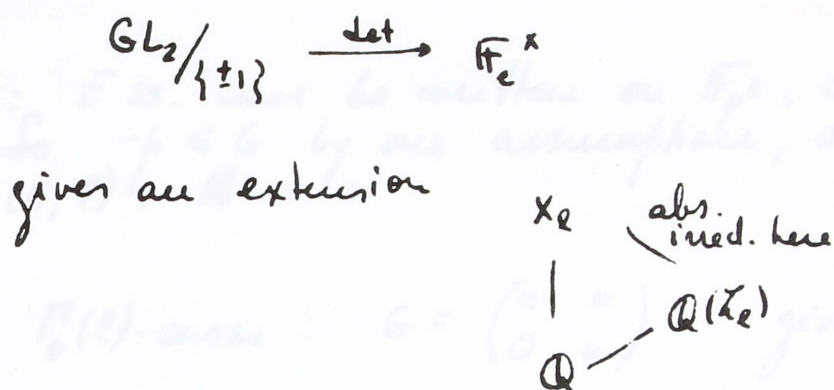 GL₂/{±1} —det→ 𝔽ₑˣ
gives an extension
Xₑ abs.
irred. here
ℚ(ζₑ)
ℚ